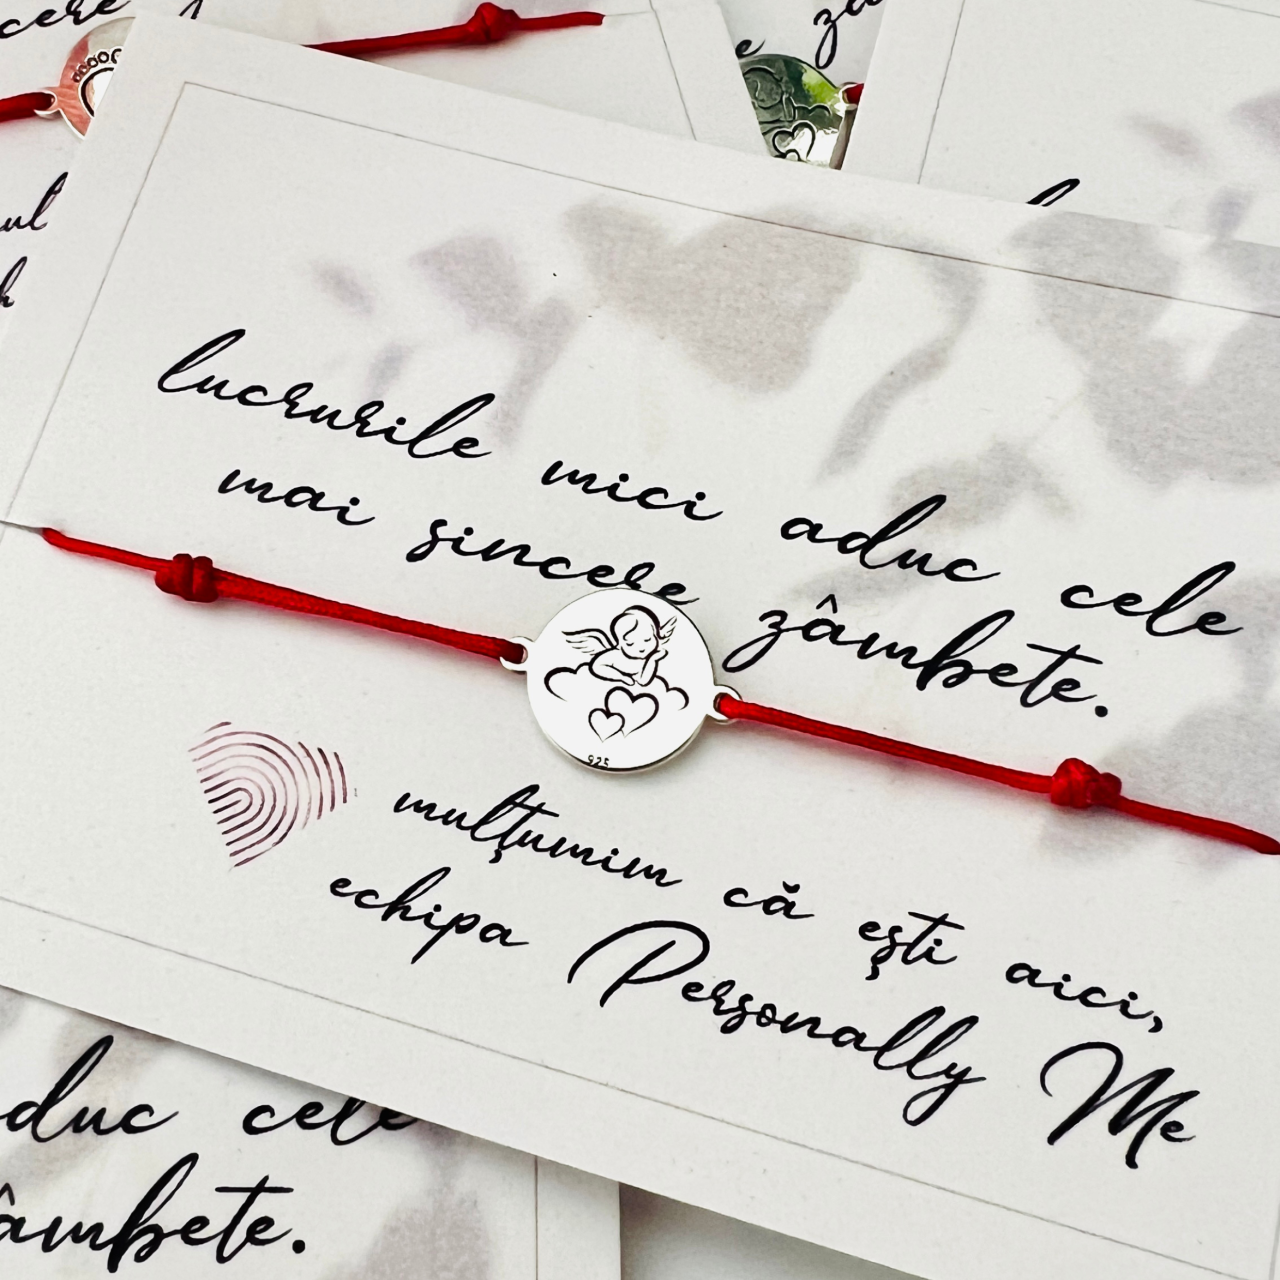 cere
ul
lucrurile mici aduc cele
mai sincere zâmbete.
925
mulțumim că ești aici,
echipa Personally Me
aduc cele
zâmbete.